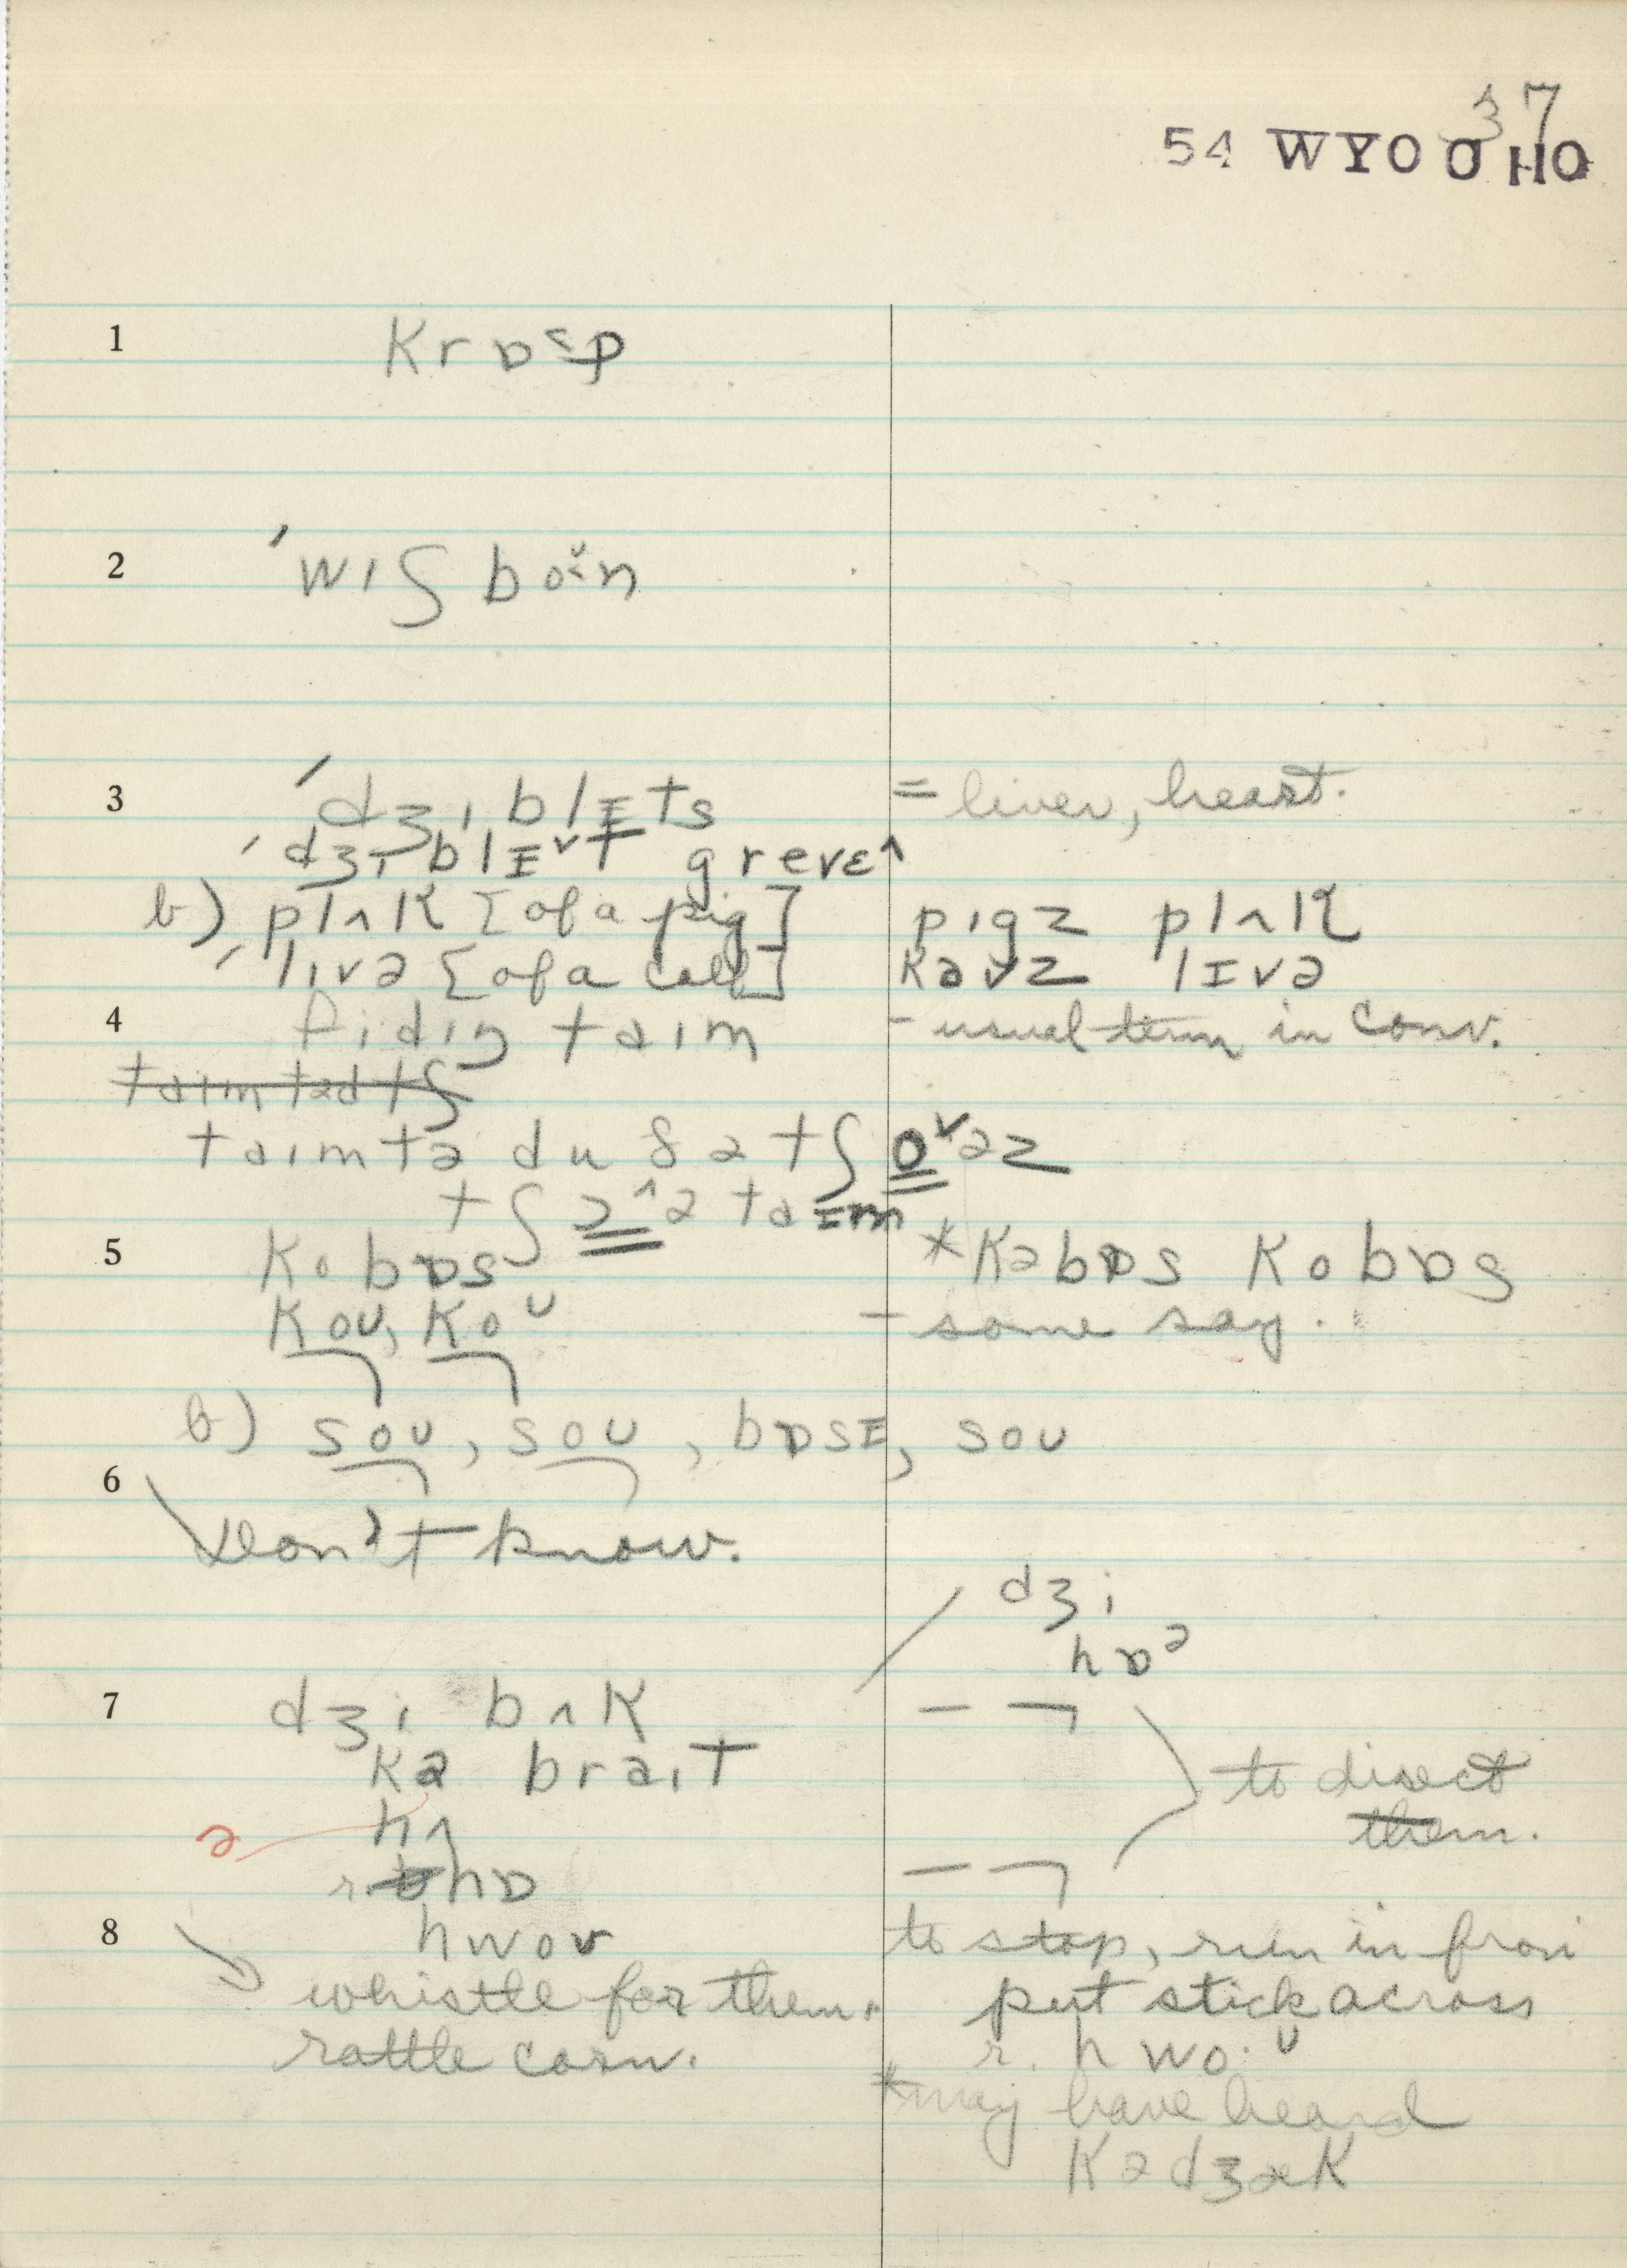 37
54 WYO O HO
1 krɒ˂p
2 ˈwɪʃ boʊ˂n
3 ˈdʒɪblɪts = liver, heart.
ˈdʒɪblɪ˅t greve^
b) plʌk [of a pig] pigz plʌk
ˈlɪvə [of a calf] kavz lɪvə
4 fidiŋ taɪm - usual term in conv.
taɪmtədtʃ
taɪmtə du ðə tʃo˅əz
tʃɔ^ə taɪm
5 kobɒs *kəbɒs kobɒs
koʊ, koʊ - some say.
b) soʊ, soʊ, bɒsɪ, soʊ
6
don't know.
dʒi
hɒə
7 dʒi bʌk
kə braɪt to direct
hʌ them.
ə
r. hɒ
8 hwoʊ to stop, run in front
whistle for them. put stick across
rattle corn. r. hwo·ʊ
*may have heard
kədʒæk